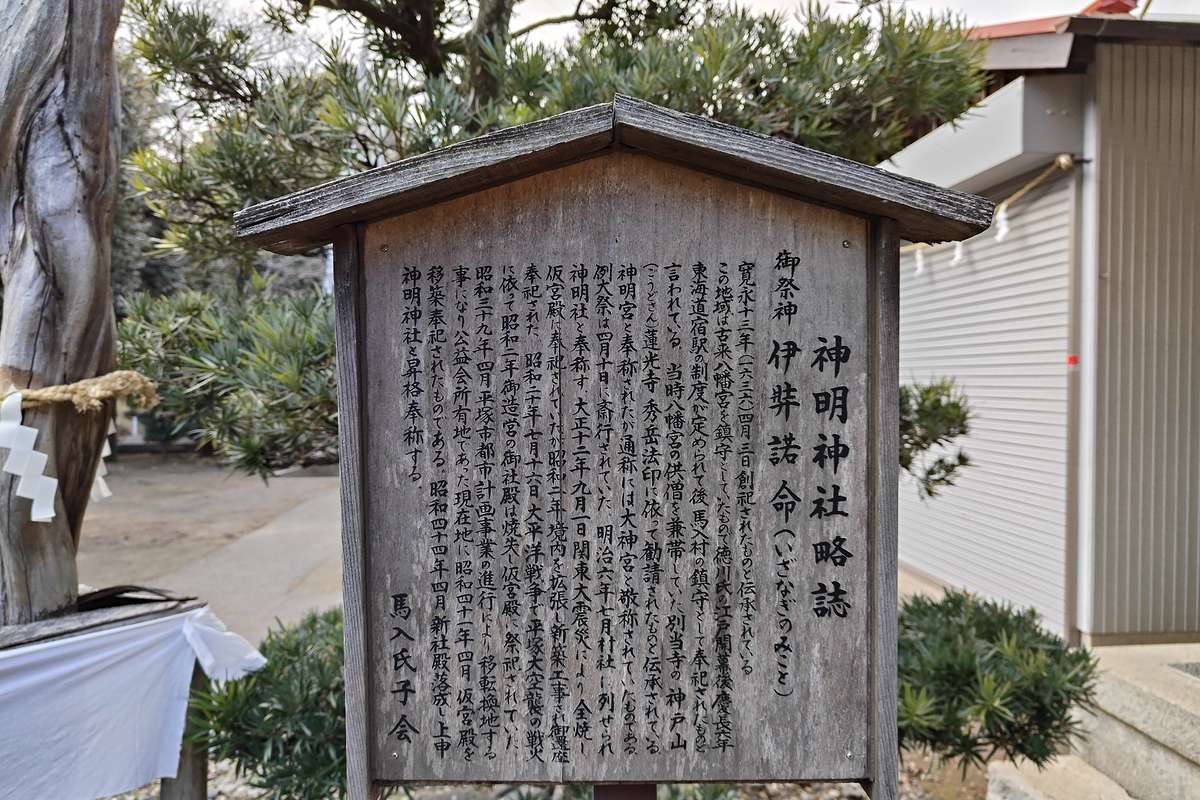 神明神社略誌
御祭神 伊弉諾命(いざなぎのみこと)
寛永十三年(一六三六)四月三日創祀されたものと伝承されている
この地域は古来八幡宮を鎮守としていたもので徳川氏の江戸開幕後慶長六年
東海道宿駅の制度が定められて後馬入村の鎮守として奉祀されたものと
言われている。当時八幡宮の供僧を兼帯していた別当寺の神戸山
(ごうどさん)蓮光寺 秀岳法印に依って勧請されたものと伝承されている
神明宮と奉称されたが通称には大神宮と敬称されていたものである
例大祭は四月十日に斎行されていた 明治六年七月村社に列せられ
神明社と奉称す 大正十二年九月一日関東大震災により全焼し
仮宮殿に奉祀されていたが昭和二年境内を拡張し新築工事され御遷座
奉祀された。昭和二十年七月十六日大平洋戦争で平塚大空襲の戦火
に依って昭和二年御造営の御社殿は焼失、仮宮殿に祭祀されていた、
昭和三十九年四月平塚市都市計画事業の進行により 移転換地する
事になり公益会所有地であった現在地に昭和四十一年四月 仮宮殿を
移築奉祀されたものである。昭和四十四年四月 新社殿落成し上申
神明神社と昇格奉称する。
馬入氏子会